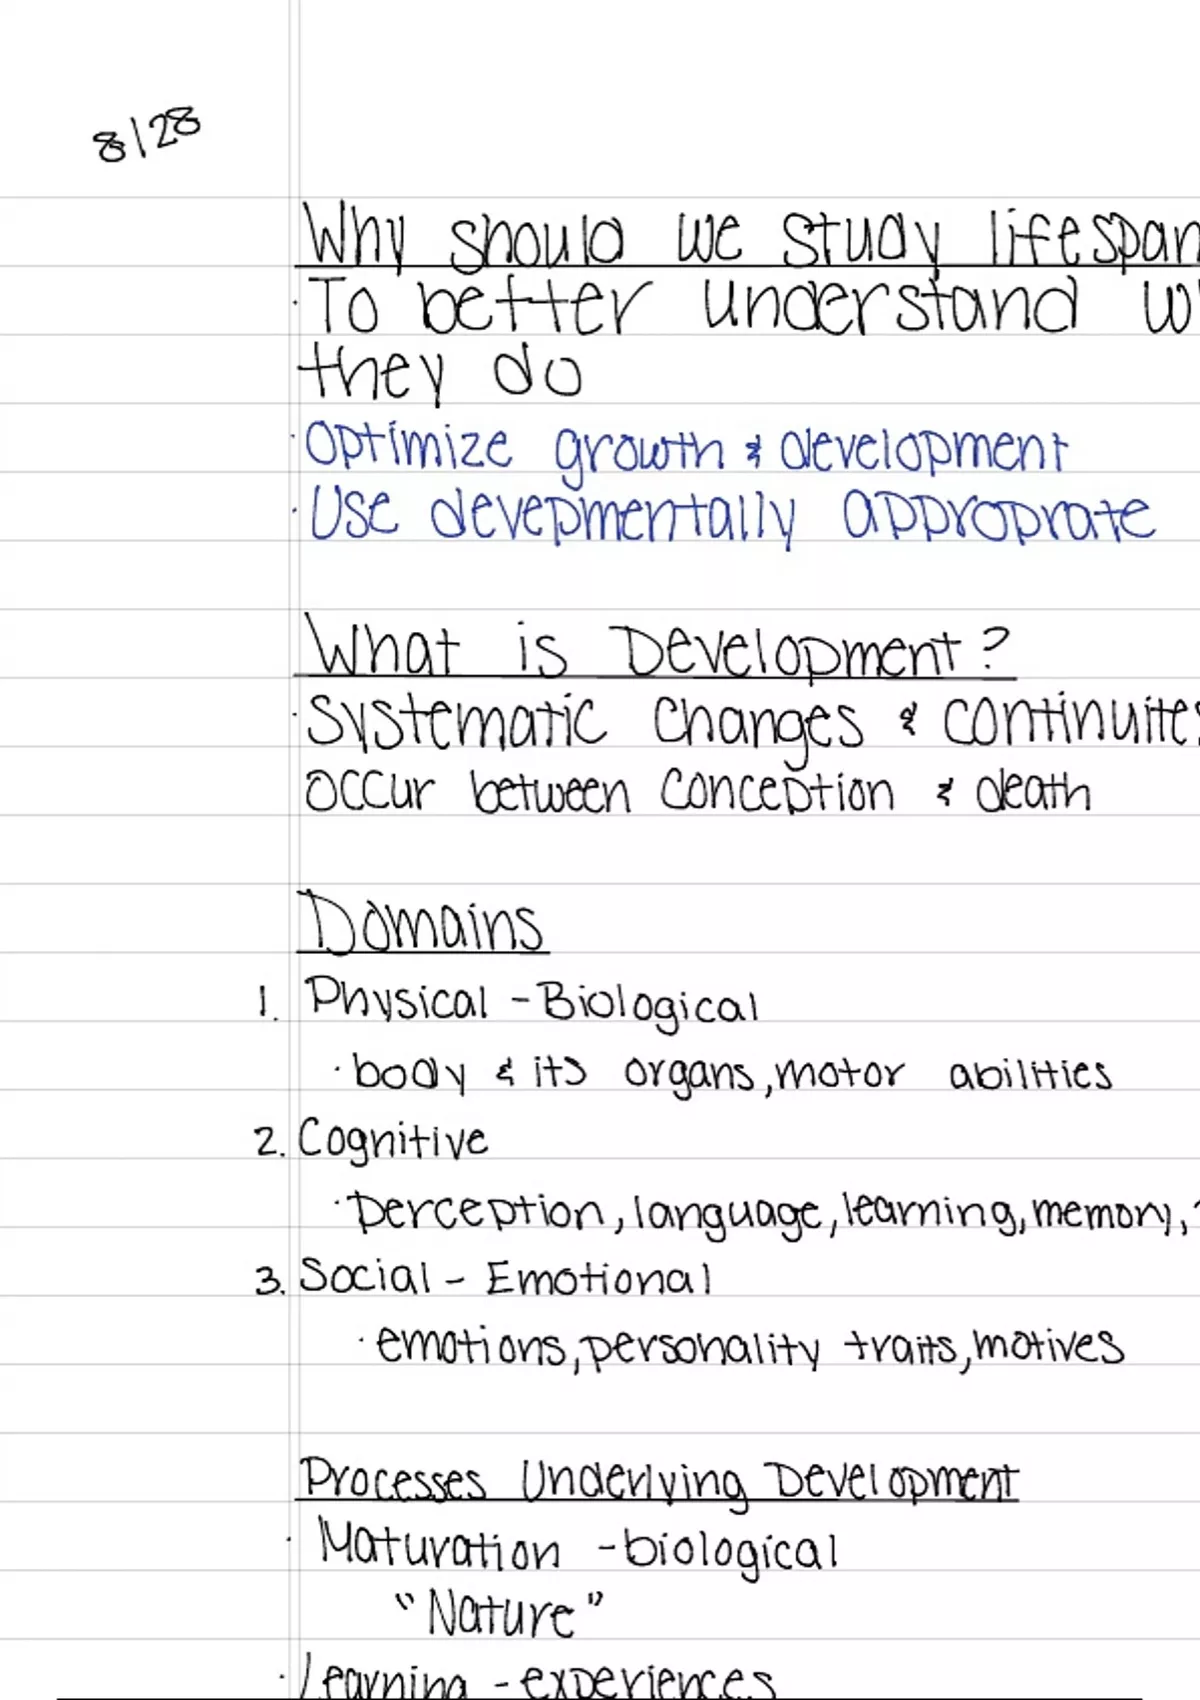 8/28
Why should we study lifespan
· To better understand w
they do
· Optimize growth & development
· Use devepmentally approprate
What is Development?
· Systematic changes & continuites
occur between conception & death
Domains
1. Physical - Biological
· body & its organs, motor abilities
2. Cognitive
· perception, language, learning, memory,
3. Social - Emotional
· emotions, personality traits, motives
Processes Underlying Development
· Maturation - biological
"Nature"
· Learning - experiences